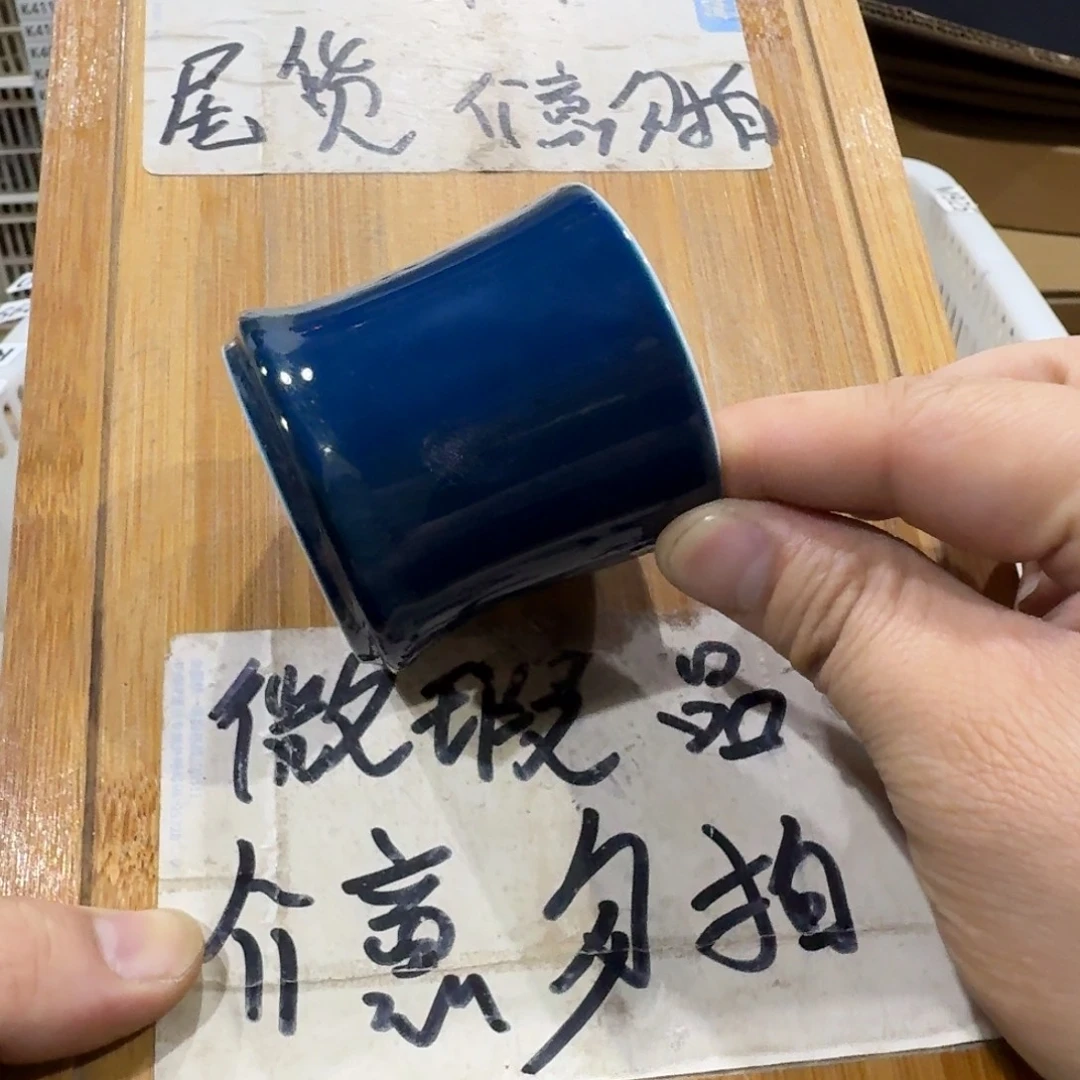 尾货 介意勿拍
微瑕品
介意勿拍